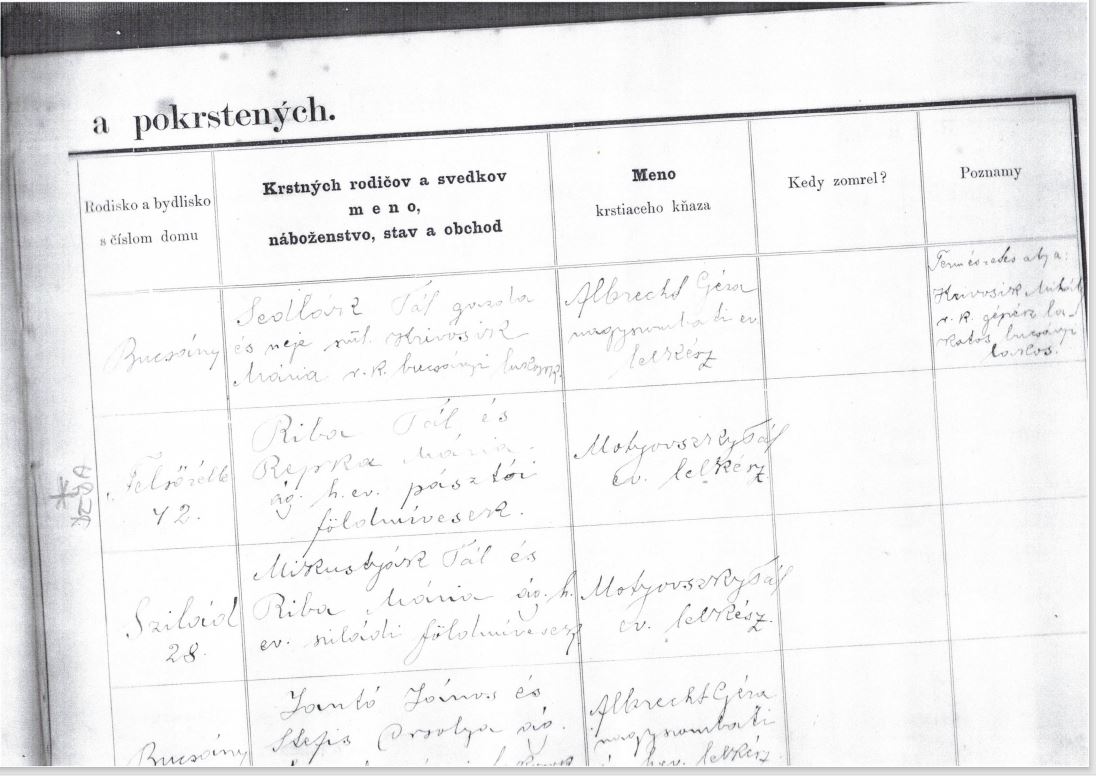 a pokrstených.
Rodisko a bydlisko
s číslom domu
Krstných rodičov a svedkov
meno,
náboženstvo, stav a obchod
Meno
krstiaceho kňaza
Kedy zomrel?
Poznamy
Bucsány
Sedlárz Pál gazda
és neje szül. Krivosik
Mária r. k. bucsányi
Albrecht Géza
nagyszombati ev.
lelkész
Természetes atyja:
Krivosik Mihály
r. k. gépész la-
katos bucsányi
lakos.
Felsőrétb
42.
Riba Pál és
Repka Mária
ág. h. ev. pásztói
földmívesek.
Motyovszky Pál
ev. lelkész
Szilád
28.
Mikustyák Pál és
Riba Mária ág. h.
ev. sziládi földmívesek
Motyovszky Pál
ev. lelkész.
Bucsány
Jankó János és
Stefis Orsolya ág.
Albrecht Géza
nagyszombati
h. ev. lelkész